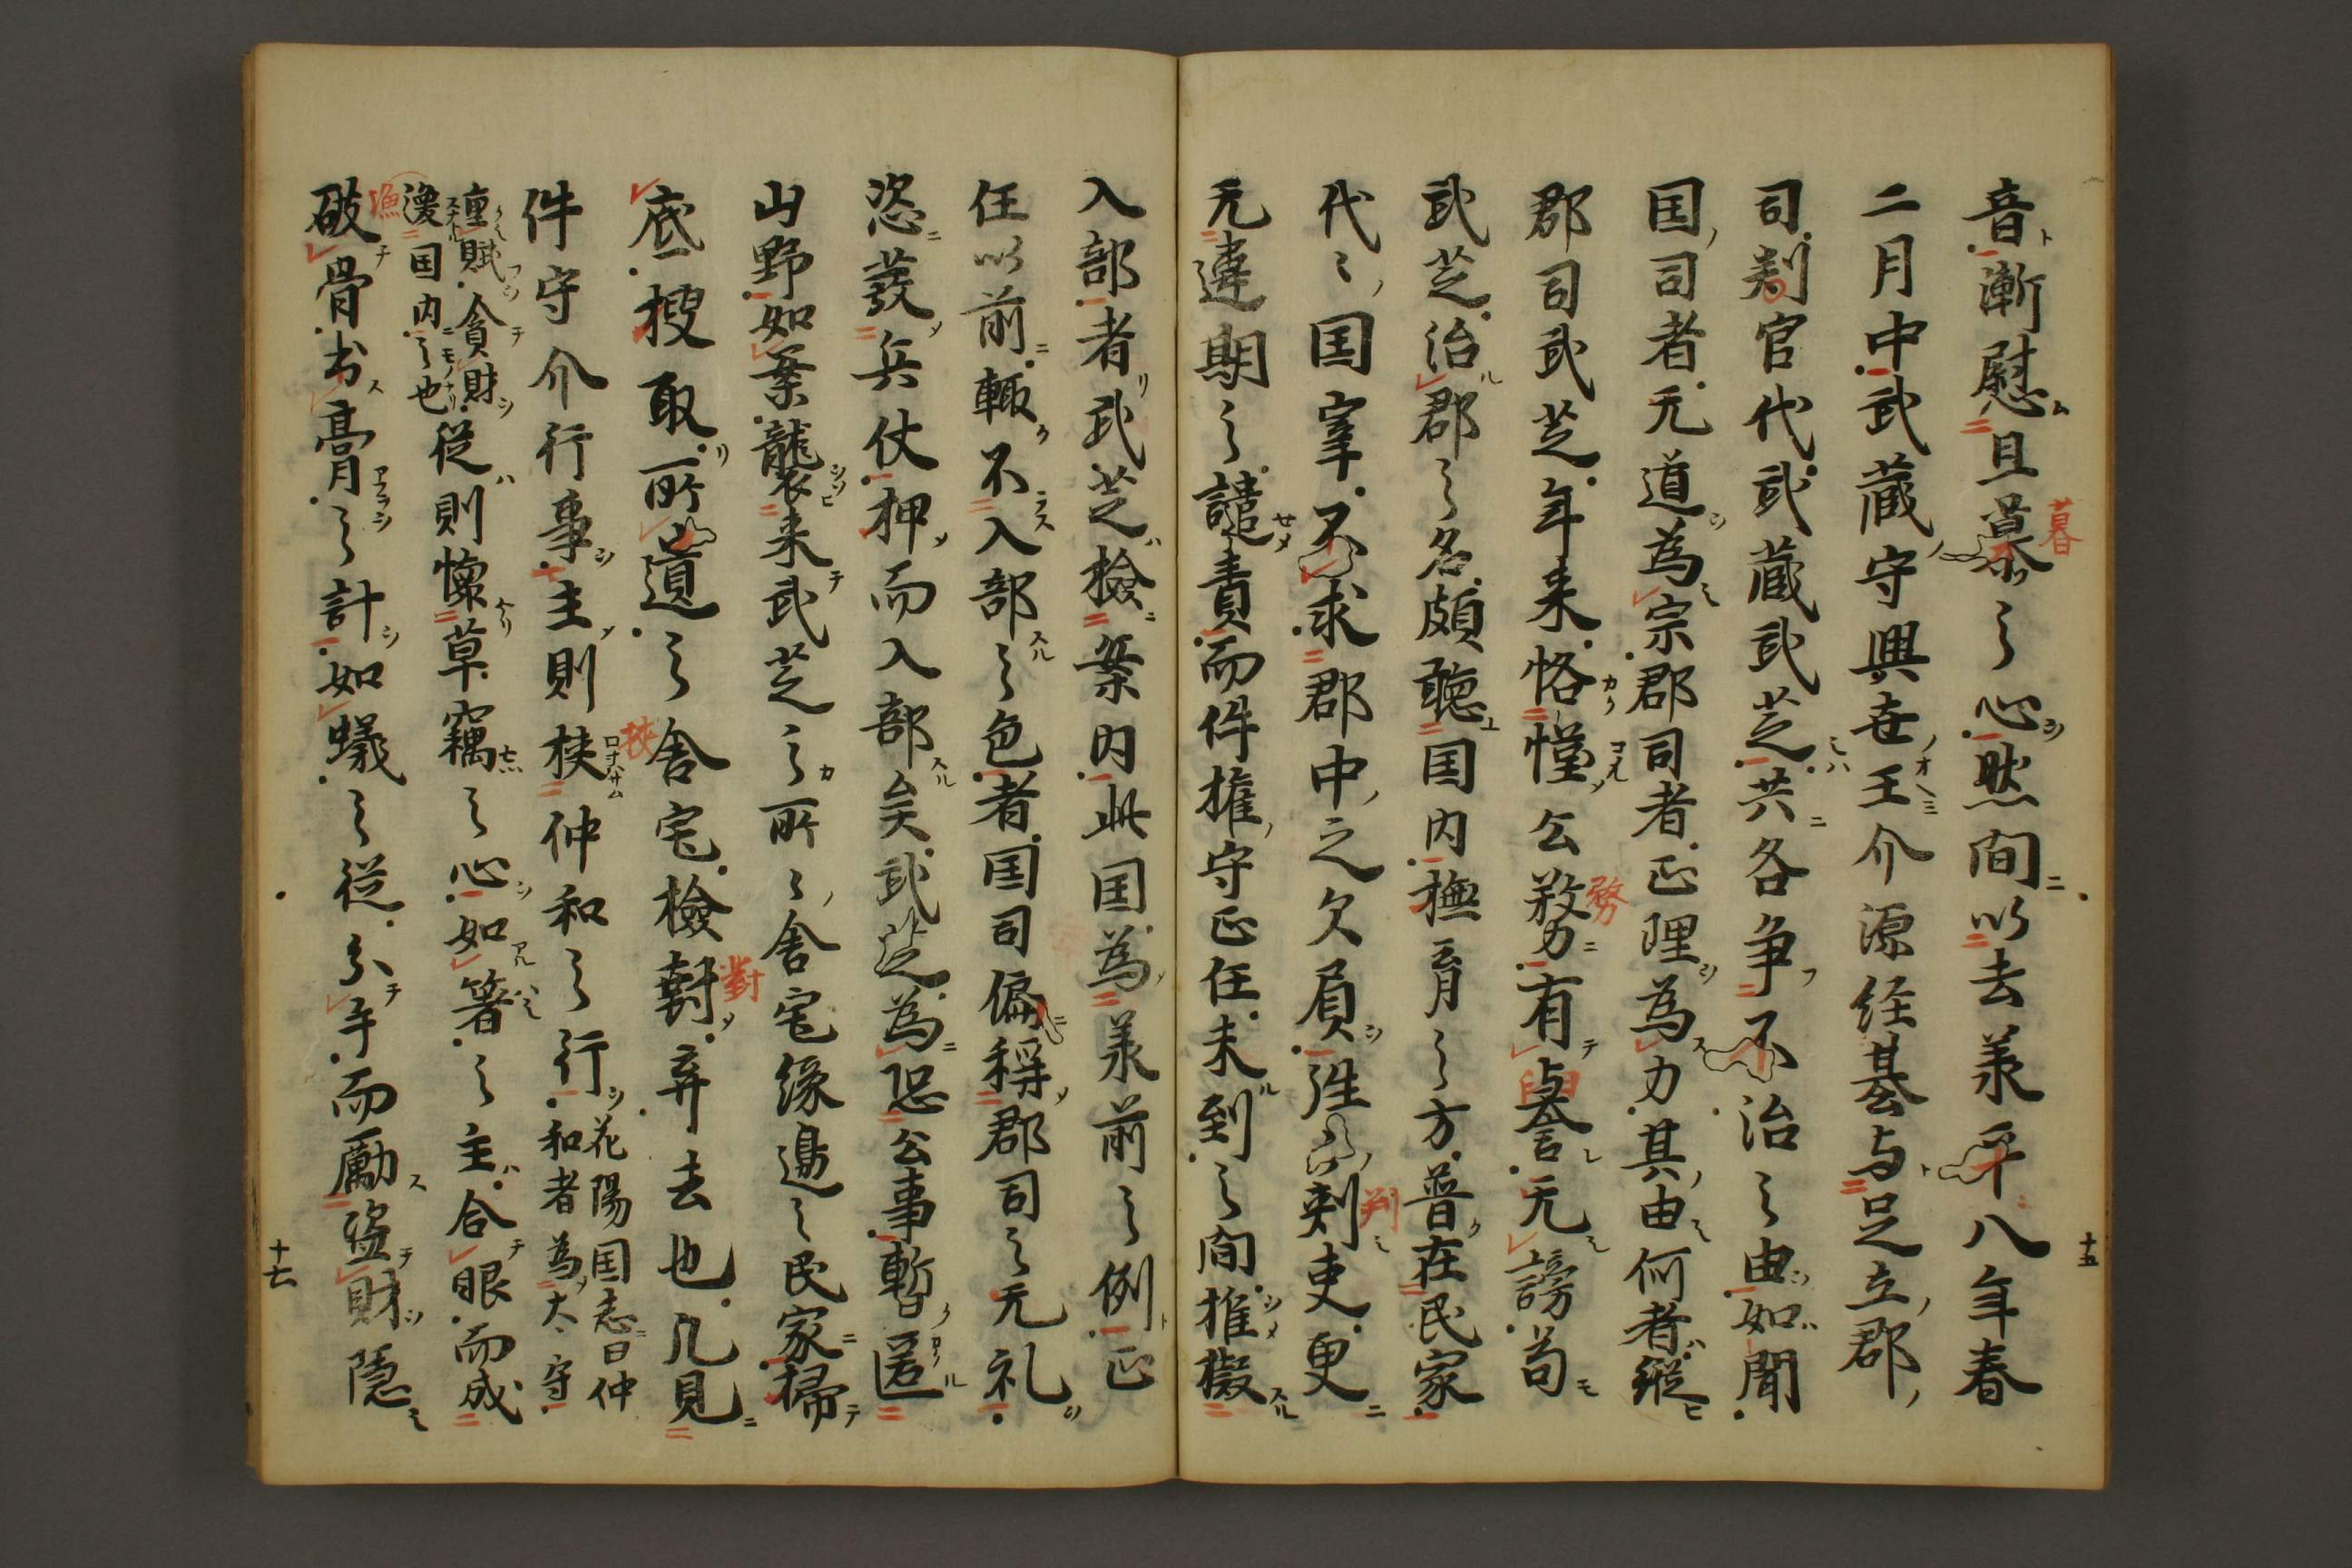 音漸慰且慕之心然間以去承平八年春
二月中武蔵守興世王介源経基与足立郡
司判官代武蔵武芝共各争不治之由如聞
国司者无道為宗郡司者正理為力其由何者縦
郡司武芝年来恪慬公務有誉无謗苟
武芝治郡之名頗聴国内撫育之方普在民家
代々国宰不求郡中之欠負往々刺吏更
无違期之譴責而件権守正任未到之間推擬
入部者武芝検案内此国為承前之例正
任以前輙不入部之色者国司偏稱郡司之无礼
恣發兵仗押而入部矣武芝為恐公事暫匿
山野如案襲来武芝之所々舎宅縁邊之民家掃
底捜取所遺之舎宅檢對弃去也凡見
件守介行事主則挟仲和之行
花陽国志曰仲
和者為太守
重賦貪財
漫国内之也
従則懐草竊之心如箸之主合眼而成
破骨出膏之計如蟻之従分手而勵盗財隠
暮
務
判
對
挟
漁
十五
十六